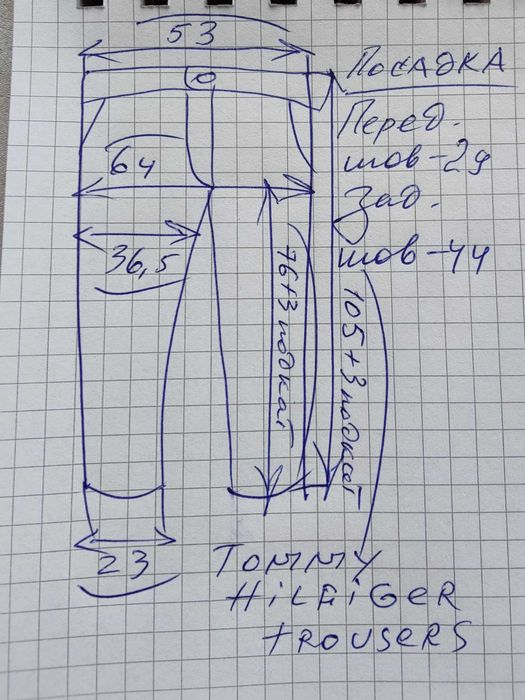 53
ПОСАДКА
Перед.
шов-29
64
Зад.
шов-44
36,5
76+3 подкат
105+3 подкат
23
TOMMY
HiLFiGER
trousers